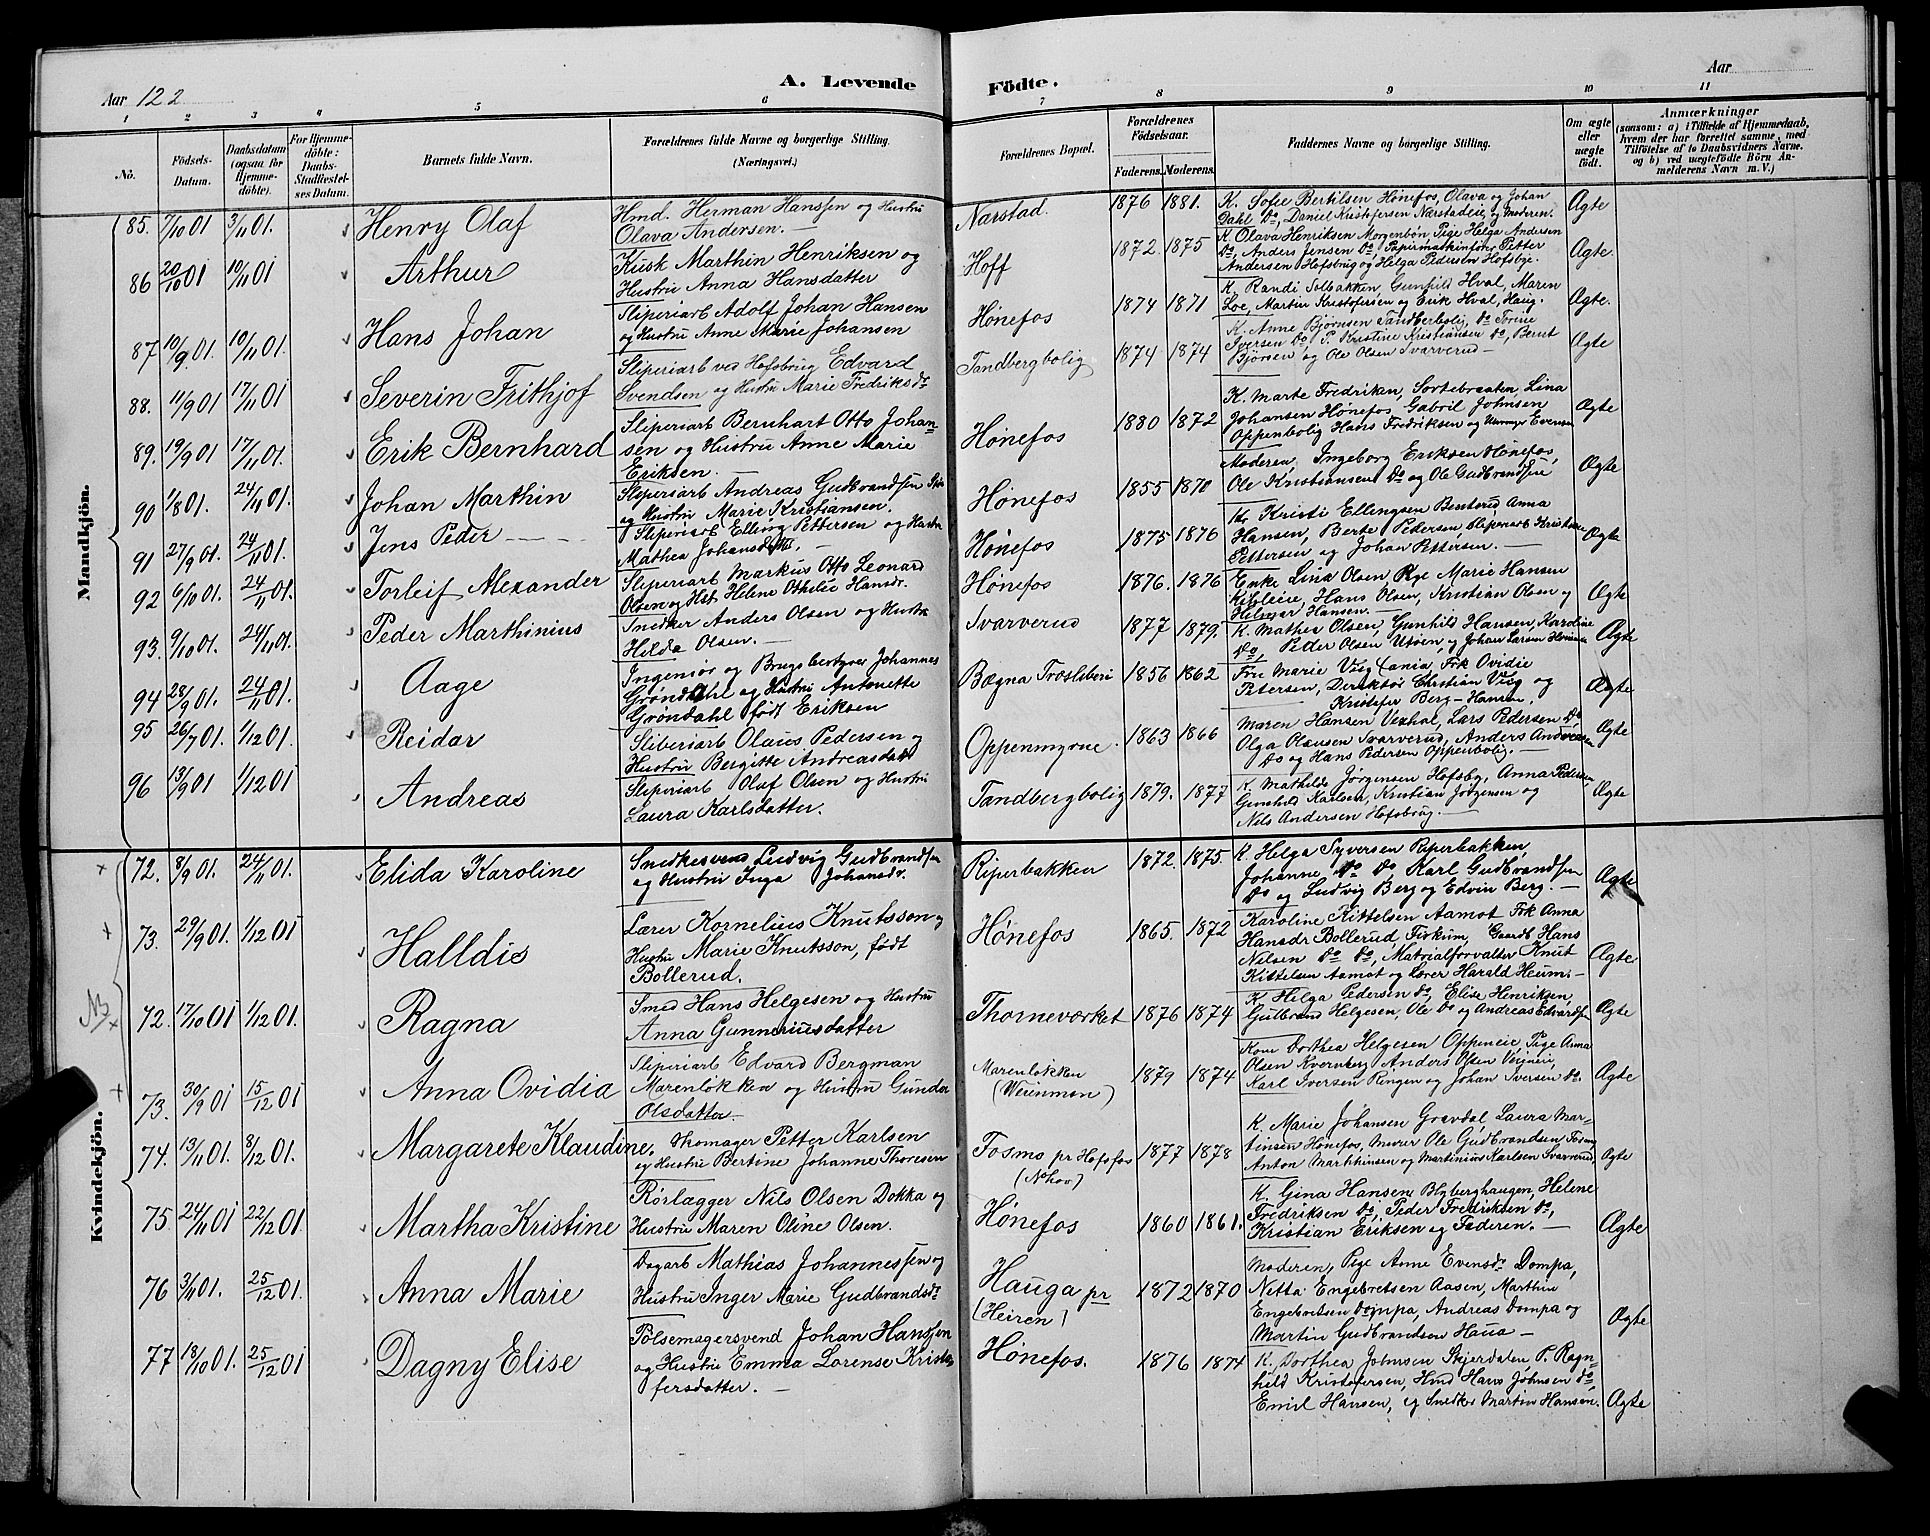 Aar 122
A. Levende Födte.
Aar
1 2 3 4 5 6 7 8 9 10 11
No.
Födsels-Datum.
Daabsdatum (ogsaa for Hjemmedöbte).
For Hjemmedöbte: Daabs-Stadfæstelses Datum.
Barnets fulde Navn.
Forældrenes fulde Navne og borgerlige Stilling. (Næringsvei.)
Forældrenes Bopæl.
Forældrenes Födselsaar.
Faderens. Moderens.
Faddernes Navne og borgerlige Stilling.
Om ægte eller uægte födt.
Anmærkninger
(saasom: a) i Tilfælde af Hjemmedaab,
hvem der har forrettet samme, med
Tilföielse af to Daabsvidners Navne,
og b) ved uægtefödte Börn Anmelderens Navn m. V.)
Mandkjön.
85. 7/10 01 3/11 01. Henry Olaf
Hmd. Herman Hanssen og Hustru
Olava Andersen. —
Narstad. 1876 1881.
K. Sofie Bertilsen Hønefos, Olava og Johan
Dahl Do, Daniel Kristofersen Nærstadeie, og Moderen.
Ægte
86 20/10 01 10/11 01 Arthur
Kusk Marthin Henriksen og
Hustru Anna Hansdatter
Hoff 1872 1875
K Olava Henriksen Morgenbøn Pige Helga Andersen
Do, Anders Jensen Do, Papirmaskinfører Petter
Andersen Hofsbrug og Helga Pedersen Hofsbye.
Ægte.
87 10/9 01. 10/11 01. Hans Johan
Sliperiarb Adolf Johan Hansen
og Hustru Anne Marie Johansen
Hønefos 1874 1871
K. Randi Solbakken, Gunhild Hval, Maren
Loe, Martin Kristofersen og Erik Hval, Haug.
Ægte.
88. 11/9 01 17/11 01 Severin Frithjof
Sliperiarb ved Hofsbrug Edvard
Svendsen og Hustru Marie Fredriksdr
Tandbergbolig 1874 1874
K. Anne Bjørnsen Tandberbolig, Do Torine
Iversen Do, P. Kristine Kristiansen Do, Bernt
Bjørsen og Ole Olsen Svarverud —
Ægte
89. 19/9 01 17/11 01. Erik Bernhard
Sliperiarb Bernhart Otto Johan=
sen og Hustru Anne Marie
Eriksen. —
Hønefos 1880 1872
K. Marte Fredriken, Sortebraaten, Lina
Johansen Hønefos, Gabril Johnsen
Oppenbolig Hans Fredriksen og Evensen
Ægte
90 1/8 01. 24/11 01. Johan Marthin
Sliperiarb Andreas Gudbrandsen
og Hustru Marie Kristiansen.
Hønefos 1855 1870
Moderen, Ingeborg Eriksen Hønefos,
Ole Kristiansen Do og Ole Gudbrandsen
Ægte
91 27/9 01. 24/11 01. Jens Peder
Sliperiarb Elling Pettersen og Hustru
Mathea Johansdatter, —
Hønefos 1875 1876
K Kristi Ellingsen Benterud Anna
Hansen, Berte Pedersen, Sliperiarb Kristian
Pettersen og Johan Pettersen. —
Ægte
92 6/10 01. 24/11 01. Torleif Alexander
Sliperiarb Markus Otto Leonard
Olsen og Hst Helene Othelie Hansdr.
Hønefos 1876. 1876
Enke Lina Olsen, Pige Marie Hansen
Kibleie, Hans Olsen, Kristian Olsen og
Helmer Hansen. —
Ægte
93. 9/10 01. 24/11 01. Peder Marthinius
Snedker Anders Olsen og Hustru
Hilda Olsen. —
Svarverud 1877 1879.
K. Mathea Olsen, Gunhild Hansen, Karoline
Do, Peder Olsen Utøen, og Johan Larsen
Ægte
94 28/9 01. 24/11 01. Aage
Ingeniør og Brugsbestyrer Johannes
Grøndahl og Hustru Antonette
Grøndahl født Eriksen
Bægna Træsliberi 1856 1862
Fru Marie Vig Xania, Frk Ovidie
Petersen, Derektør Christian Vig og
Kristofer Berg-Hansen,
Ægte
95 26/7 01. 1/12 01. Reidar
Sliberiarb Olaus Pedersen og
Hustru Bergitte Andreasdatt
Oppenmyrne. 1863 1866
Maren Hansen Vexhal, Lars Pedersen Do,
Olga Olausen Svarverud, Anders Andersen
Do og Hans Pedersen Oppenbolig. —
Ægte
96 13/9 01 1/12 01 Andreas
Sliperiarb Olaf Olsen og Hustru
Laura Karlsdatter.
Tandbergbolig 1879. 1877
K. Mathilde Jørgensen Hofsby, Anna Pedersen,
Gunhild Karlsen, Kristian Jörgensen og
Nils Andersen Hofsbrug. —
Ægte
Kvindekjön.
72. 8/9 01. 24/11 01. Elida Karoline
Snedkesvend Ludvig Gudbrandsen
og Hustru Inga Johansdr.
Riperbakken 1872. 1875.
K. Helga Syversen Riperbakken,
Johanne Do Do, Karl Gudbrandsen
Do og Ludvig Berg og Edvin Berg. —
Ægte
73. 29/9 01. 1/12 01 Halldis
Lærer Kornelius Knutsson og
Hustru Marie Knutsson, født
Bollerud.
Hønefos 1865. 1872
Karoline Kittelsen Aamot Frk Anna
Hansdr Bollerud, Fiskum, Gaardb Hans
Nilsen Do Do, Matrialforvalter Knut
Kittelsen Aamot og Lærer Harald Heumi—
Ægte
NB
72. 17/10 01 1/12 01. Ragna
Smed Hans Helgesen og Hustru
Anna Gunneriusdatter
Thorneværket 1876 1874
K. Helga Pedersen Do, Elise Henriksen,
Gulbrand Helgesen, Ole Do og Andreas Edvardsen
Ægte
73. 30/9 01 15/12 01 Anna Ovidia
Sliperiarb Edvard Bergman
Marenløkka og Hustru Gunda
Olsdatter —
Marenløkken
(Weienmon) 1879 1874
Kom Dorthea Helgesen Oppeneie, Pige Anna
Olsen Kvernberg, Anders Olsen Veijneie,
Karl Iversen Ringen og Johan Iversen Do.
Ægte
74. 13/11 01. 8/12 01. Margarete Klaudine.
Skomager Petter Karlsen
og Hustru Bertine Johanne Thoresen
Fosmo pr Hofsfos
(Nohov) 1877 1878
K. Marie Johansen Gravdal, Laura Mar-
tinsen Hønefos, Murer Ole Gudbrandsen Fosmo
Anton Marthinsen og Martinius Karlsen Svarverud.
Ægte
75 24/11 01 22/12 01. Martha Kristine
Rørlægger Nils Olsen Dokka og
Hustru Maren Oline Olsen.
Hønefos 1860 1861.
K. Gina Hansen Blyberghaugen, Helene
Fredriksen Do, Peder Fredriksen Do,
Kristian Eriksen og Faderen. —
Ægte
76 3/11 01. 25/12 01. Anna Marie
Dagarb Mathias Johannessen og
Hustru Inger Marie Gudbrandsdr
Hauga pr
(Heiren) 1872 1870
Moderen, Pige Anne Evensdr Dompa,
Netta Engebretsen Aasen, Marthin
Engebretsen Dompa, Andreas Dompa og
Martin Gudbrandsen Haua —
Ægte
77 18/10 01. 25/12 01 Dagny Elise
Pølsemagersvend Johan Hanssen
og Hustru Emma Lorense Kristo
fersdatter. —
Hønefos. 1876 1874
K. Dorthea Johnsen Skjerdalen, P. Ragn=
hild Kristofersen, Hmd Hans Johnsen Do,
Emil Hansen, og Snedker Martin Hansen.
Ægte